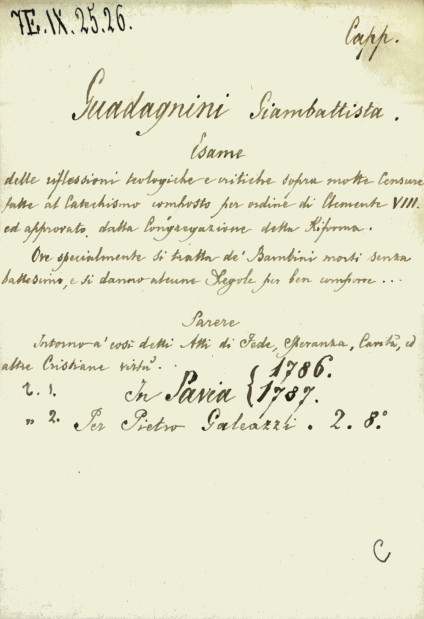 7E.IX.25.26.
Capp.
Guadagnini Giambattista.
Esame
delle riflessioni teologiche e critiche sopra molte Censure
fatte al Catechismo composto per ordine di Clemente VIII.
ed approvato dalla Congregazione della Riforma.
Ove specialmente si tratta de' Bambini morti senza
battesimo, e si danno alcune Regole per ben comporre ...
Parere
Intorno a' così detti Atti di Fede, Speranza, Carità, ed
altre Cristiane virtù. . .
t. 1. In Pavia { 1786.
1787.
" 2. Per Pietro Galeazzi. 2. 8.°
C